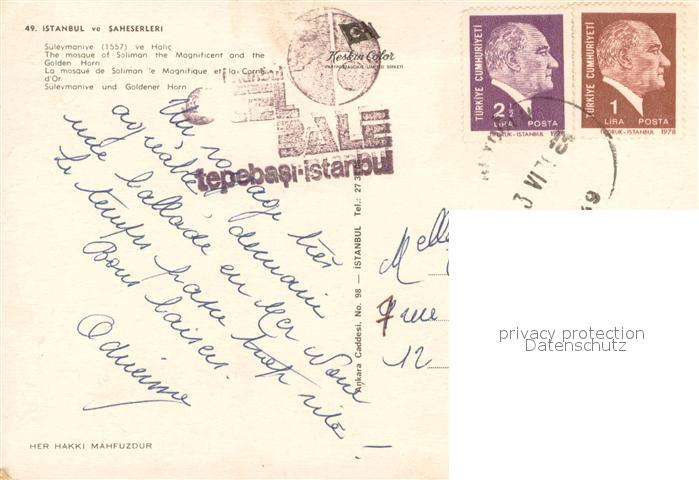 49. İSTANBUL ve ŞAHESERLERİ
Süleymaniye (1557) ve Haliç
The mosque of Soliman the Magnificent and the
Golden Horn
La mosqué de Soliman 'e Magnifique et la Corne
d'Or
Süleymaniye und Goldener Horn
Keskin Color
BALE
tepebaşı-istanbul
TÜRKİYE CUMHURİYETİ
2½
LİRA POSTA
TÜRKİYE CUMHURİYETİ
1
LİRA POSTA
1978
Un voyage très
agréable, demain
une ballade en Mer Noire
Le temps passe trop vite !
Bons baisers.
Adrienne
Ankara Caddesi. No. 98 — İSTANBUL Tel.: 27
Melle
7 rue
12
privacy protection
Datenschutz
HER HAKKI MAHFUZDUR